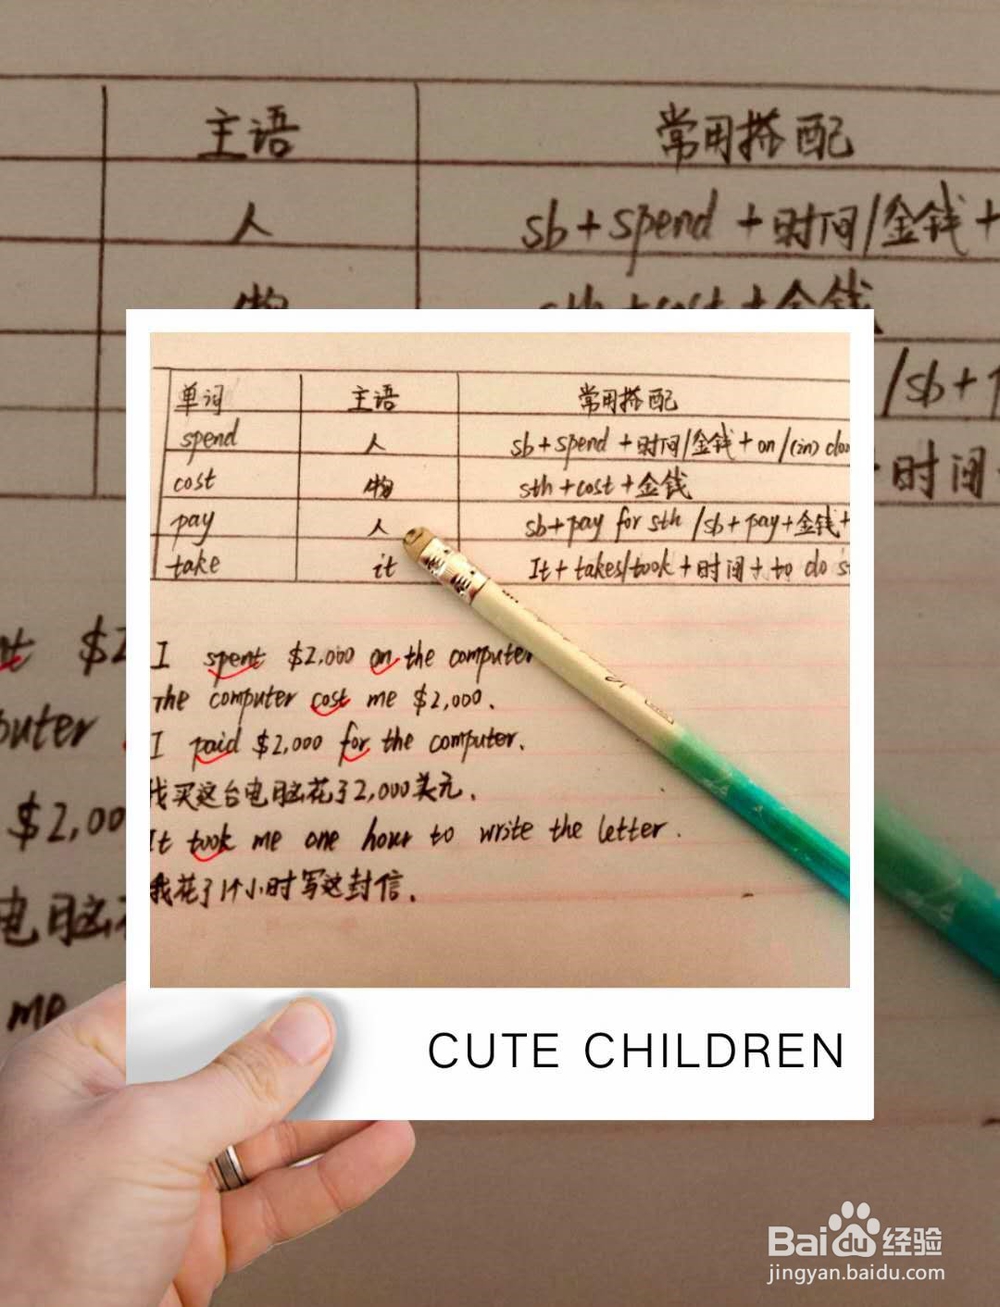 主语 常用搭配
人 sb+spend+时间/金钱+
物 sth+cost+金钱
/sb+
时间
单词 主语 常用搭配
spend 人 sb+spend+时间/金钱+on/(in)
cost 物 sth+cost+金钱
pay 人 sb+pay for sth/sb+pay+金钱+
take it It+takes/took+时间+to do
I spent $2,000 on the computer
The computer cost me $2,000.
I paid $2,000 for the computer.
我买这台电脑花了2,000美元.
It took me one hour to write the letter.
我花了1个小时写这封信.
$2,00
电脑
me
CUTE CHILDREN
Baidu经验
jingyan.baidu.com